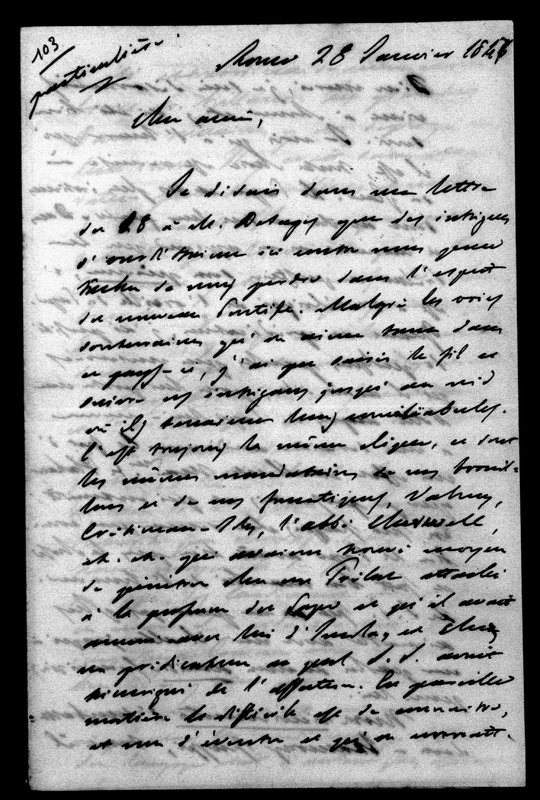 103
particulière.
Rome 28 Janvier 184
Mon ami,
Je disais dans une lettre
du 18 à M. Desages que des intrigues
s'ourdissaient ici contre nous pour
tâcher de nous perdre dans l'esprit
du nouveau Pontife. Malgré les voies
souterraines qu'on aime tant dans
ce pays-ci, j'ai pu saisir le fil et
suivre ces intrigues jusqu'au nid
où ils tenaient leurs conciliabules.
C'est toujours la même clique, ce sont
les mêmes mandataires de nos brouil-
lons et de nos fanatiques, Valmy,
Crétineau-Joly, l'abbé
etc. etc. qui avaient trouvé moyen
de pénétrer chez un Prélat attaché
à la personne du Pape et qu'il avait
amené avec lui d'Imola, et chez
un prédicateur au quel S. S. avait
témoigné de l'affection. En pareille
matière le difficile est de connaître,
et non d'éventer ce qu'on connaît.